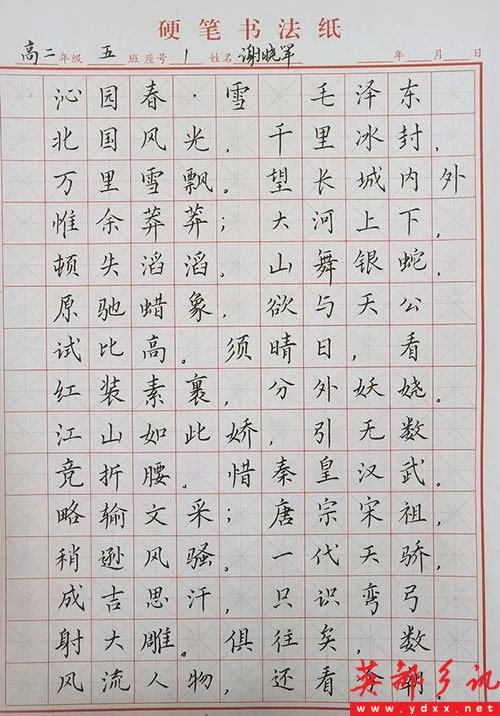 硬笔书法纸
高二年级 五 班 座号 1 姓名 谢晓军 年 月 日
沁园春·雪 毛泽东
北国风光,千里冰封,
万里雪飘。望长城内外
惟余莽莽;大河上下,
顿失滔滔。山舞银蛇,
原驰蜡象,欲与天公
试比高。须晴日,看
红装素裹,分外妖娆。
江山如此娇,引无数
竞折腰。惜秦皇汉武。
略输文采;唐宗宋祖,
稍逊风骚。一代天骄,
成吉思汗,只识弯弓
射大雕。俱往矣,数
风流人物,还看今朝。
英都乡讯
www.ydxx.net